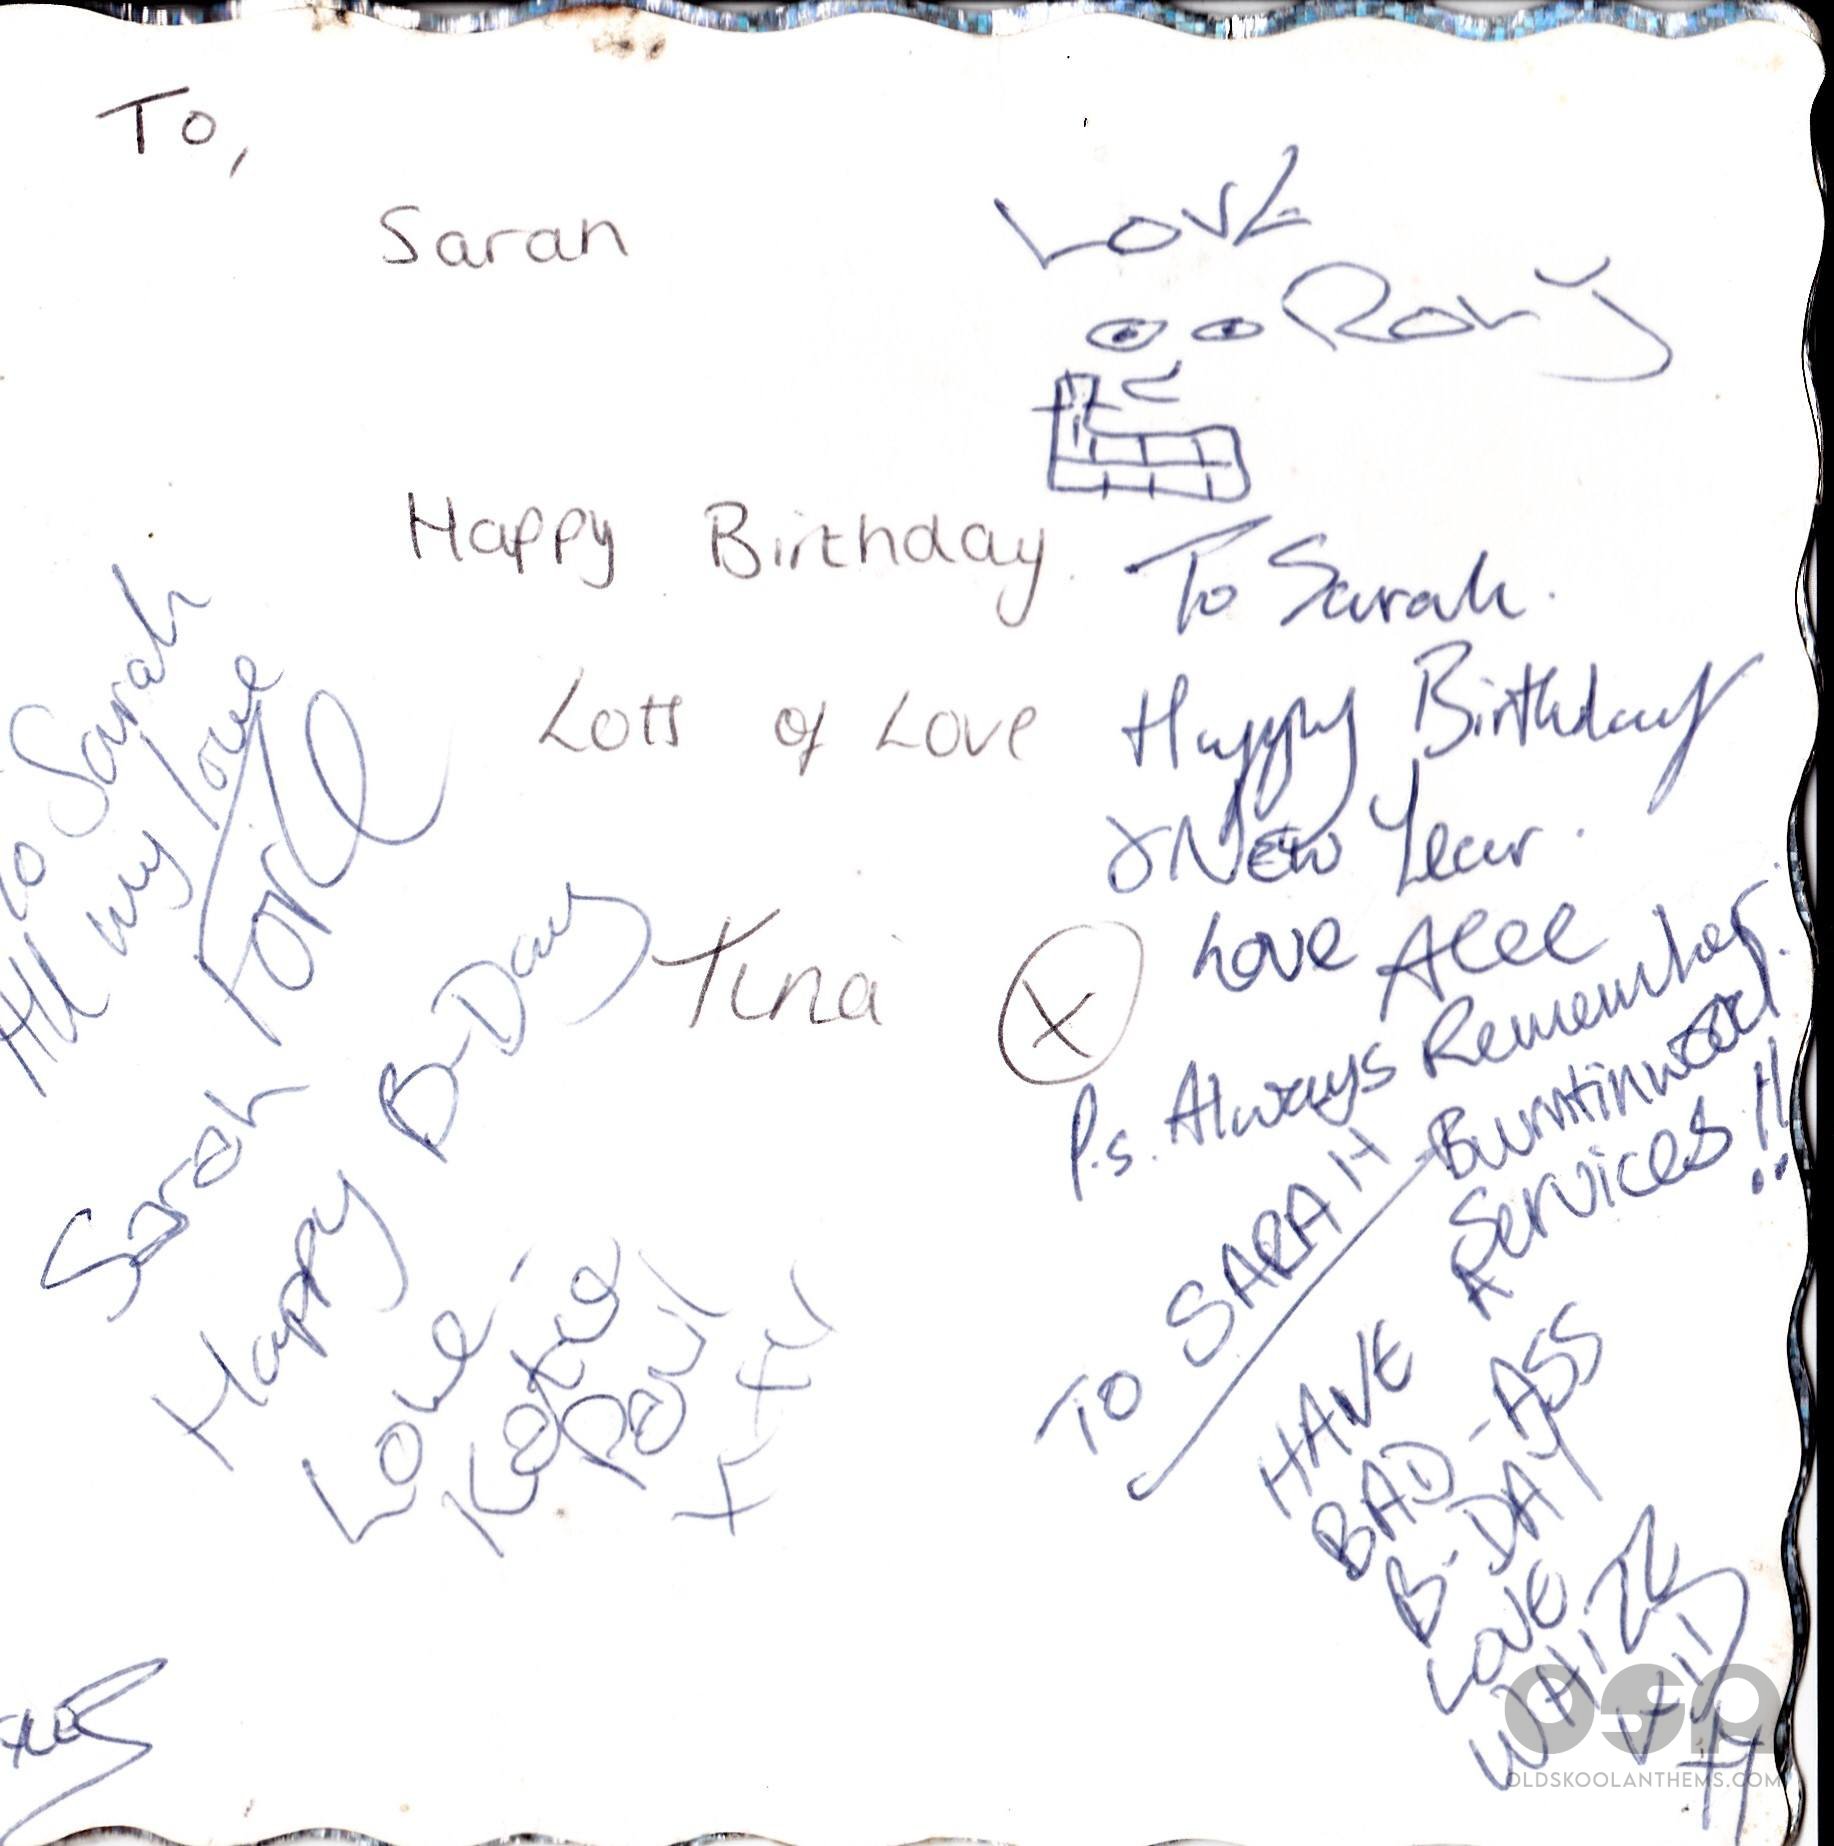 To,
Sarah
Happy Birthday.
Lots of Love
Tina X
Love
Rory
To Sarah.
Happy Birthday
& New Year.
Love Alee
P.s. Always Remember
Burntinwood
Services!!
To Sarah
All my love
Sarah
Happy B-Day
Love
Katie
Paul
x x
TO SARAH
HAVE A
BAD-ASS
B-DAY
LOVE
WHIZZ
OSA
OLDSKOOLANTHEMS.COM